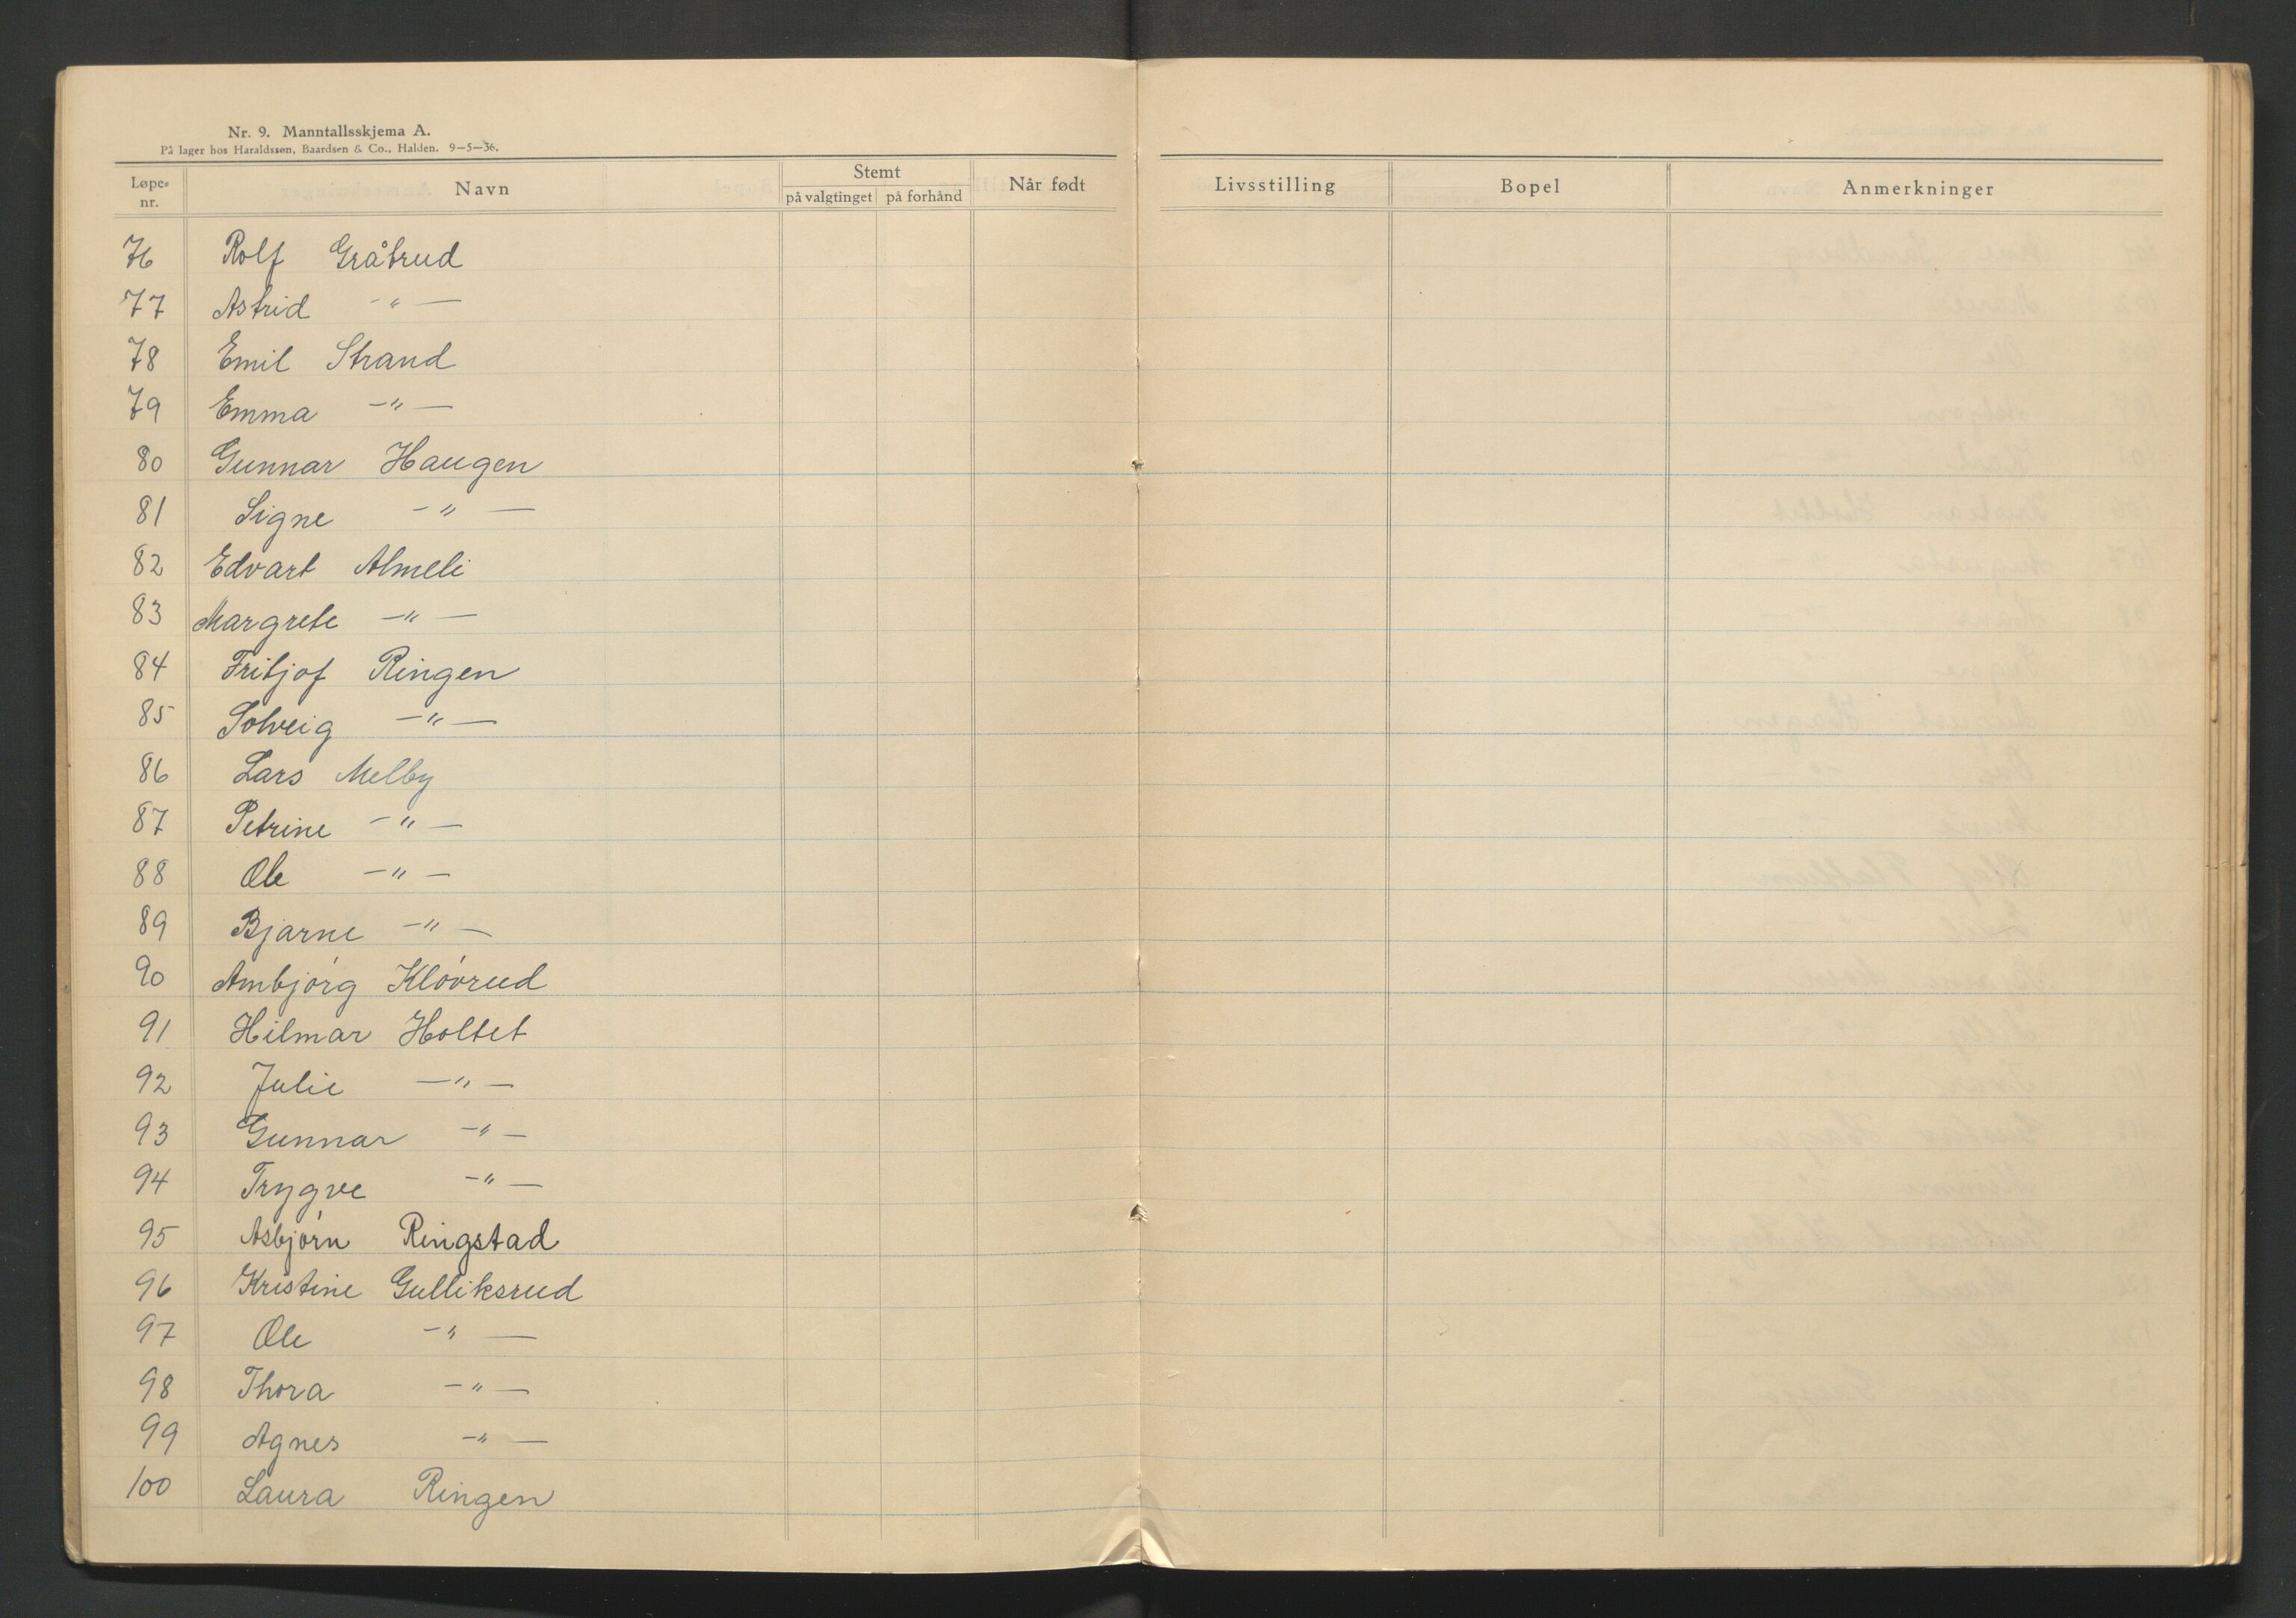 Nr. 9. Manntallsskjema A.
På lager hos Haraldssøn, Baardsen & Co., Halden. 9—5—36.
Løpe-nr. Navn Stemt på valgtinget på forhånd Når født Livsstilling Bopel Anmerkninger
76 Rolf Gråbrud
77 Astrid -"-
78 Emil Strand
79 Emma -"-
80 Gunnar Haugen
81 Signe -"-
82 Edvart Almeli
83 Margrete -"-
84 Fritjof Ringen
85 Solveig -"-
86 Lars Melby
87 Petrine -"-
88 Ole -"-
89 Bjarne -"-
90 Ambjórg Klóvrud
91 Hilmar Holtet
92 Julie -"-
93 Gunnar -"-
94 Trygve -"-
95 Asbjórn Ringstad
96 Kristine Gulliksrud
97 Ole -"-
98 Thora -"-
99 Agnes -"-
100 Laura Ringen